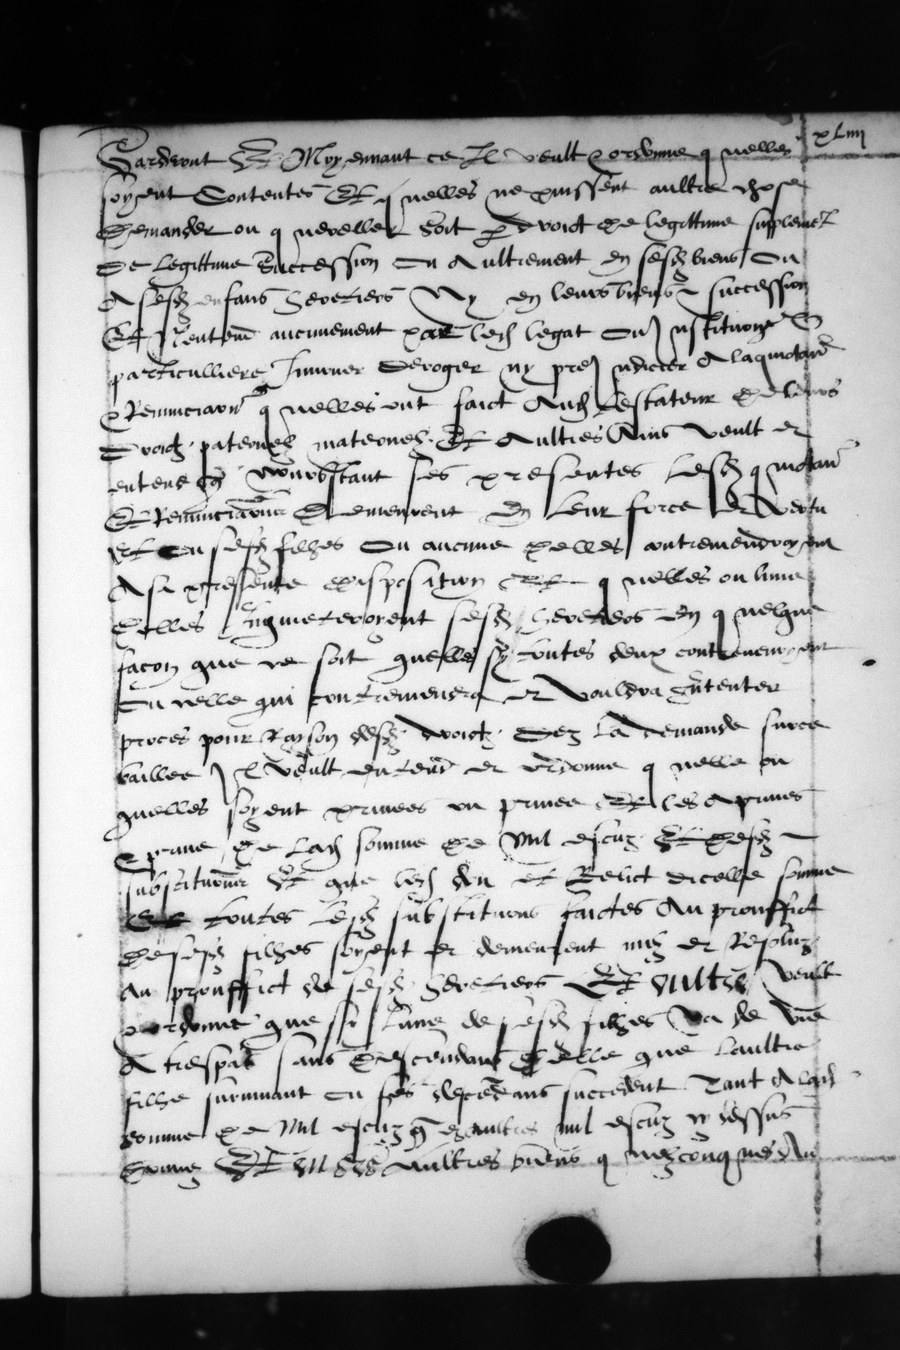 xLiiii
Garderont Et Moyennant ce Il veult & ordonne quelles
soyent Contentes Et quelles ne puissent aultre chose
demander ou quereller soit p droict de legittime supplemet
de legittime Succession ou Aultrement en sesd biens ou
A sesd enfans heretiers Ny en leurs biens & succession
Et Nentend aucunement par led legat ou Institution
particulliere Innover deroger ny preiudicier A la quictand
& Renunciation quelles ont faict Aud testateur de leurs
droictz paternelz maternelz Et Aultres Ains veult et
entend q Nonobstant ses presentes lesd quictan
Et Renunciations Demeurent En Leur force et Vertu
Et ou sesd filhes ou aucune delles contreviendroyent
A sa presente disposition Et quelles ou lune
delles Inquieteroyent sesd heretiers En quelque
façon que ce soit quelles sy toutes deux contrevenoyent
Ou celle qui contreviendra et Vouldra Intenter
proces pour Rayson desd droictz Dez La demande surce
baillee Il Veult entend et ordonne quelle ou
quelles soyent privees ou privee Et les A privees
& prive de Lad somme de Mil escuz Et desd
substitutions Et que led don et Relict dicelle somme
Et toutes Lesd substitutions faictes Au prouffict
de sesd filhes soyent et demeurent nulz et Resoluz
Au prouffict de sesd heretiers Et oultre Veult
& ordonne que sy Lune de sesd filhes Va de Vie
A trespas sans descendans delle que Laultre
filhe survivant ou ses descendans succedent Tant A lad
somme de Mil escuz q daultres mil escuz cy dessus
donnez Et en tous Aultres biens quelzconques Au